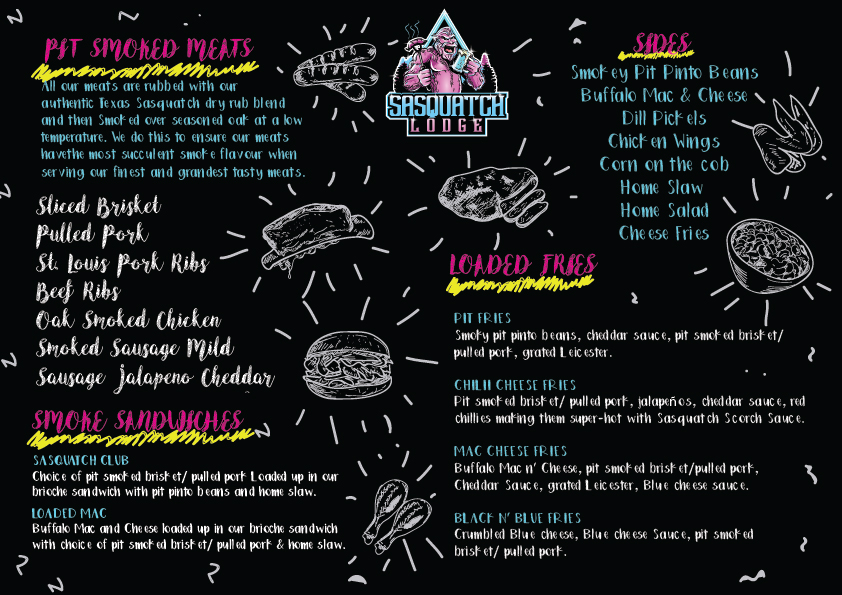 PIT SMOKED MEATS
All our meats are rubbed with our
authentic Texas Sasquatch dry rub blend
and then Smoked over seasoned oak at a low
temperature. We do this to ensure our meats
havethe most succulent smoke flavour when
serving our finest and grandest tasty meats.
Sliced Brisket
Pulled Pork
St. Louis Pork Ribs
Beef Ribs
Oak Smoked Chicken
Smoked Sausage Mild
Sausage Jalapeno Cheddar
SMOKE SANDWICHES
SASQUATCH CLUB
Choice of pit smoked brisket/ pulled pork Loaded up in our
brioche sandwich with pit pinto beans and home slaw.
LOADED MAC
Buffalo Mac and Cheese loaded up in our brioche sandwich
with choice of pit smoked brisket/ pulled pork & home slaw.
SASQUATCH
LODGE
SIDES
Smokey Pit Pinto Beans
Buffalo Mac & Cheese
Dill Pickels
Chicken Wings
Corn on the cob
Home Slaw
Home Salad
Cheese Fries
LOADED FRIES
PIT FRIES
Smoky pit pinto beans, cheddar sauce, pit smoked brisket/
pulled pork, grated Leicester.
CHILLI CHEESE FRIES
Pit smoked brisket/ pulled pork, jalapeños, cheddar sauce, red
chillies making them super-hot with Sasquatch Scorch Sauce.
MAC CHEESE FRIES
Buffalo Mac n' Cheese, pit smoked brisket/pulled pork,
Cheddar Sauce, grated Leicester, Blue cheese sauce.
BLACK N' BLUE FRIES
Crumbled Blue cheese, Blue cheese Sauce, pit smoked
brisket/ pulled pork.